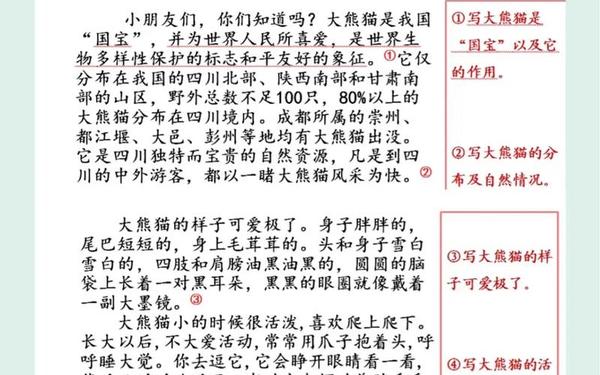 小朋友们，你们知道吗？大熊猫是我国
“国宝”，并为世界人民所喜爱，是世界生
物多样性保护的标志和平友好的象征。①它仅
分布在我国的四川北部、陕西南部和甘肃南
部的山区，野外总数不足100只，80%以上的
大熊猫分布在四川境内。成都所属的崇州、
都江堰、大邑、彭州等地均有大熊猫出没。
它是四川独特而宝贵的自然资源，凡是到四
川的中外游客，都以一睹大熊猫风采为快。②
①写大熊猫是
“国宝”以及它
的作用。
②写大熊猫的分
布及自然情况。
大熊猫的样子可爱极了。身子胖胖的，
尾巴短短的，身上毛茸茸的。头和身子雪白
雪白的，四肢和肩膀油黑油黑的，圆圆的脑
袋上长着一对黑耳朵，黑黑的眼圈就像戴着
一副大墨镜。③
大熊猫小的时候很活泼，喜欢爬上爬下。
长大以后，不大爱活动，常常用爪子抱着头，呼
呼睡大觉。你去逗它，它会睁开眼睛看一看，
③写大熊猫的样
子可爱极了。
④写大熊猫的活